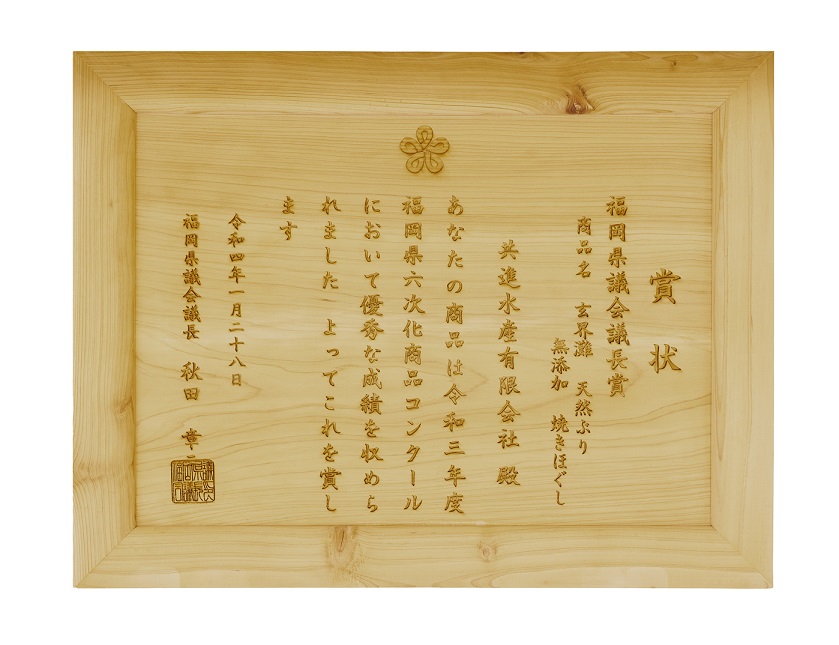 賞状
福岡県議会議長賞
商品名 玄界灘 天然ぶり
無添加 焼きほぐし
共進水産有限会社 殿
あなたの商品は令和三年度
福岡県六次化商品コンクール
において優秀な成績を収めら
れました よってこれを賞し
ます
令和四年一月二十八日
福岡県議会議長 秋田 章